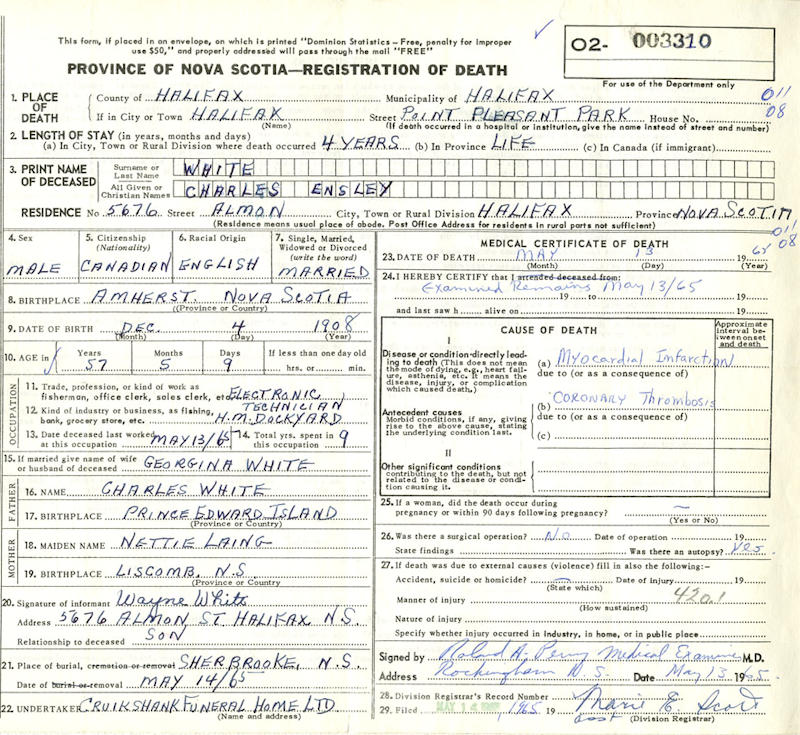 This form, if placed in an envelope, on which is printed "Dominion Statistics - Free, penalty for improper
use $50," and properly addressed will pass through the mail "FREE"
02- 003310
PROVINCE OF NOVA SCOTIA—REGISTRATION OF DEATH
For use of the Department only
1. PLACE OF DEATH
County of HALIFAX Municipality of HALIFAX 011
If in City or Town HALIFAX Street POINT PLEASANT PARK House No. 08
(Name) (If death occurred in a hospital or institution, give the name instead of street and number)
2. LENGTH OF STAY (in years, months and days)
(a) In City, Town or Rural Division where death occurred 4 YEARS (b) In Province LIFE (c) In Canada (if immigrant)
3. PRINT NAME OF DECEASED
Surname or Last Name WHITE
All Given or Christian Names CHARLES ENSLEY
RESIDENCE No 5676 Street ALMON City, Town or Rural Division HALIFAX Province NOVA SCOTIA
(Residence means usual place of abode. Post Office Address for residents in rural parts not sufficient)
011
08
4. Sex
MALE
5. Citizenship
(Nationality)
CANADIAN
6. Racial Origin
ENGLISH
7. Single, Married, Widowed or Divorced
(write the word)
MARRIED
8. BIRTHPLACE AMHERST NOVA SCOTIA
(Province or Country)
9. DATE OF BIRTH DEC. 4 1908
(Month) (Day) (Year)
10. AGE in Years Months Days If less than one day old
57 5 9 hrs. or min.
OCCUPATION
11. Trade, profession, or kind of work as
fisherman, office clerk, sales clerk, etc. ELECTRONIC TECHNICIAN
12. Kind of industry or business, as fishing,
bank, grocery store, etc. H.M. DOCKYARD
13. Date deceased last worked at this occupation MAY 13/65 14. Total yrs. spent in this occupation 9
15. If married give name of wife
or husband of deceased GEORGINA WHITE
FATHER
16. NAME CHARLES WHITE
17. BIRTHPLACE PRINCE EDWARD ISLAND
(Province or Country)
MOTHER
18. MAIDEN NAME NETTIE LAING
19. BIRTHPLACE LISCOMB, N.S
(Province or Country)
20. Signature of informant Wayne White
Address 5676 ALMON ST. HALIFAX N.S.
Relationship to deceased SON
21. Place of burial, cremation or removal SHERBROOKE, N.S.
Date of burial or removal MAY 14/65
22. UNDERTAKER CRUIKSHANK FUNERAL HOME LTD.
(Name and address)
MEDICAL CERTIFICATE OF DEATH
23. DATE OF DEATH MAY 13 65
(Month) (Day) (Year)
24. I HEREBY CERTIFY that I attended deceased from:
Examined Remains May 13/65
19 to 19
and last saw h alive on 19
CAUSE OF DEATH
Approximate interval between onset and death
I
Disease or condition directly leading to death (This does not mean
the mode of dying, e.g., heart failure, asthenia, etc. It means the
disease, injury, or complication
which caused death.)
(a) Myocardial Infarction
due to (or as a consequence of)
Antecedent causes
Morbid conditions, if any, giving
rise to the above cause, stating
the underlying condition last.
(b) Coronary Thrombosis
due to (or as a consequence of)
(c)
II
Other significant conditions
contributing to the death, but not
related to the disease or condition causing it.
25. If a woman, did the death occur during
pregnancy or within 90 days following pregnancy?
(Yes or No)
26. Was there a surgical operation? No Date of operation 19
State findings Was there an autopsy? Yes
27. If death was due to external causes (violence) fill in also the following:-
Accident, suicide or homicide? Date of injury 19
(State which)
Manner of injury 420.1
(How sustained)
Nature of injury
Specify whether injury occurred in industry, in home, or in public place
Signed by Roland A. Perry Medical Examiner M.D.
Address Rockingham N.S. Date May 13 1965
28. Division Registrar's Record Number
29. Filed MAY 14 1965, 1965 19 Marie E. Scott
(Division Registrar)